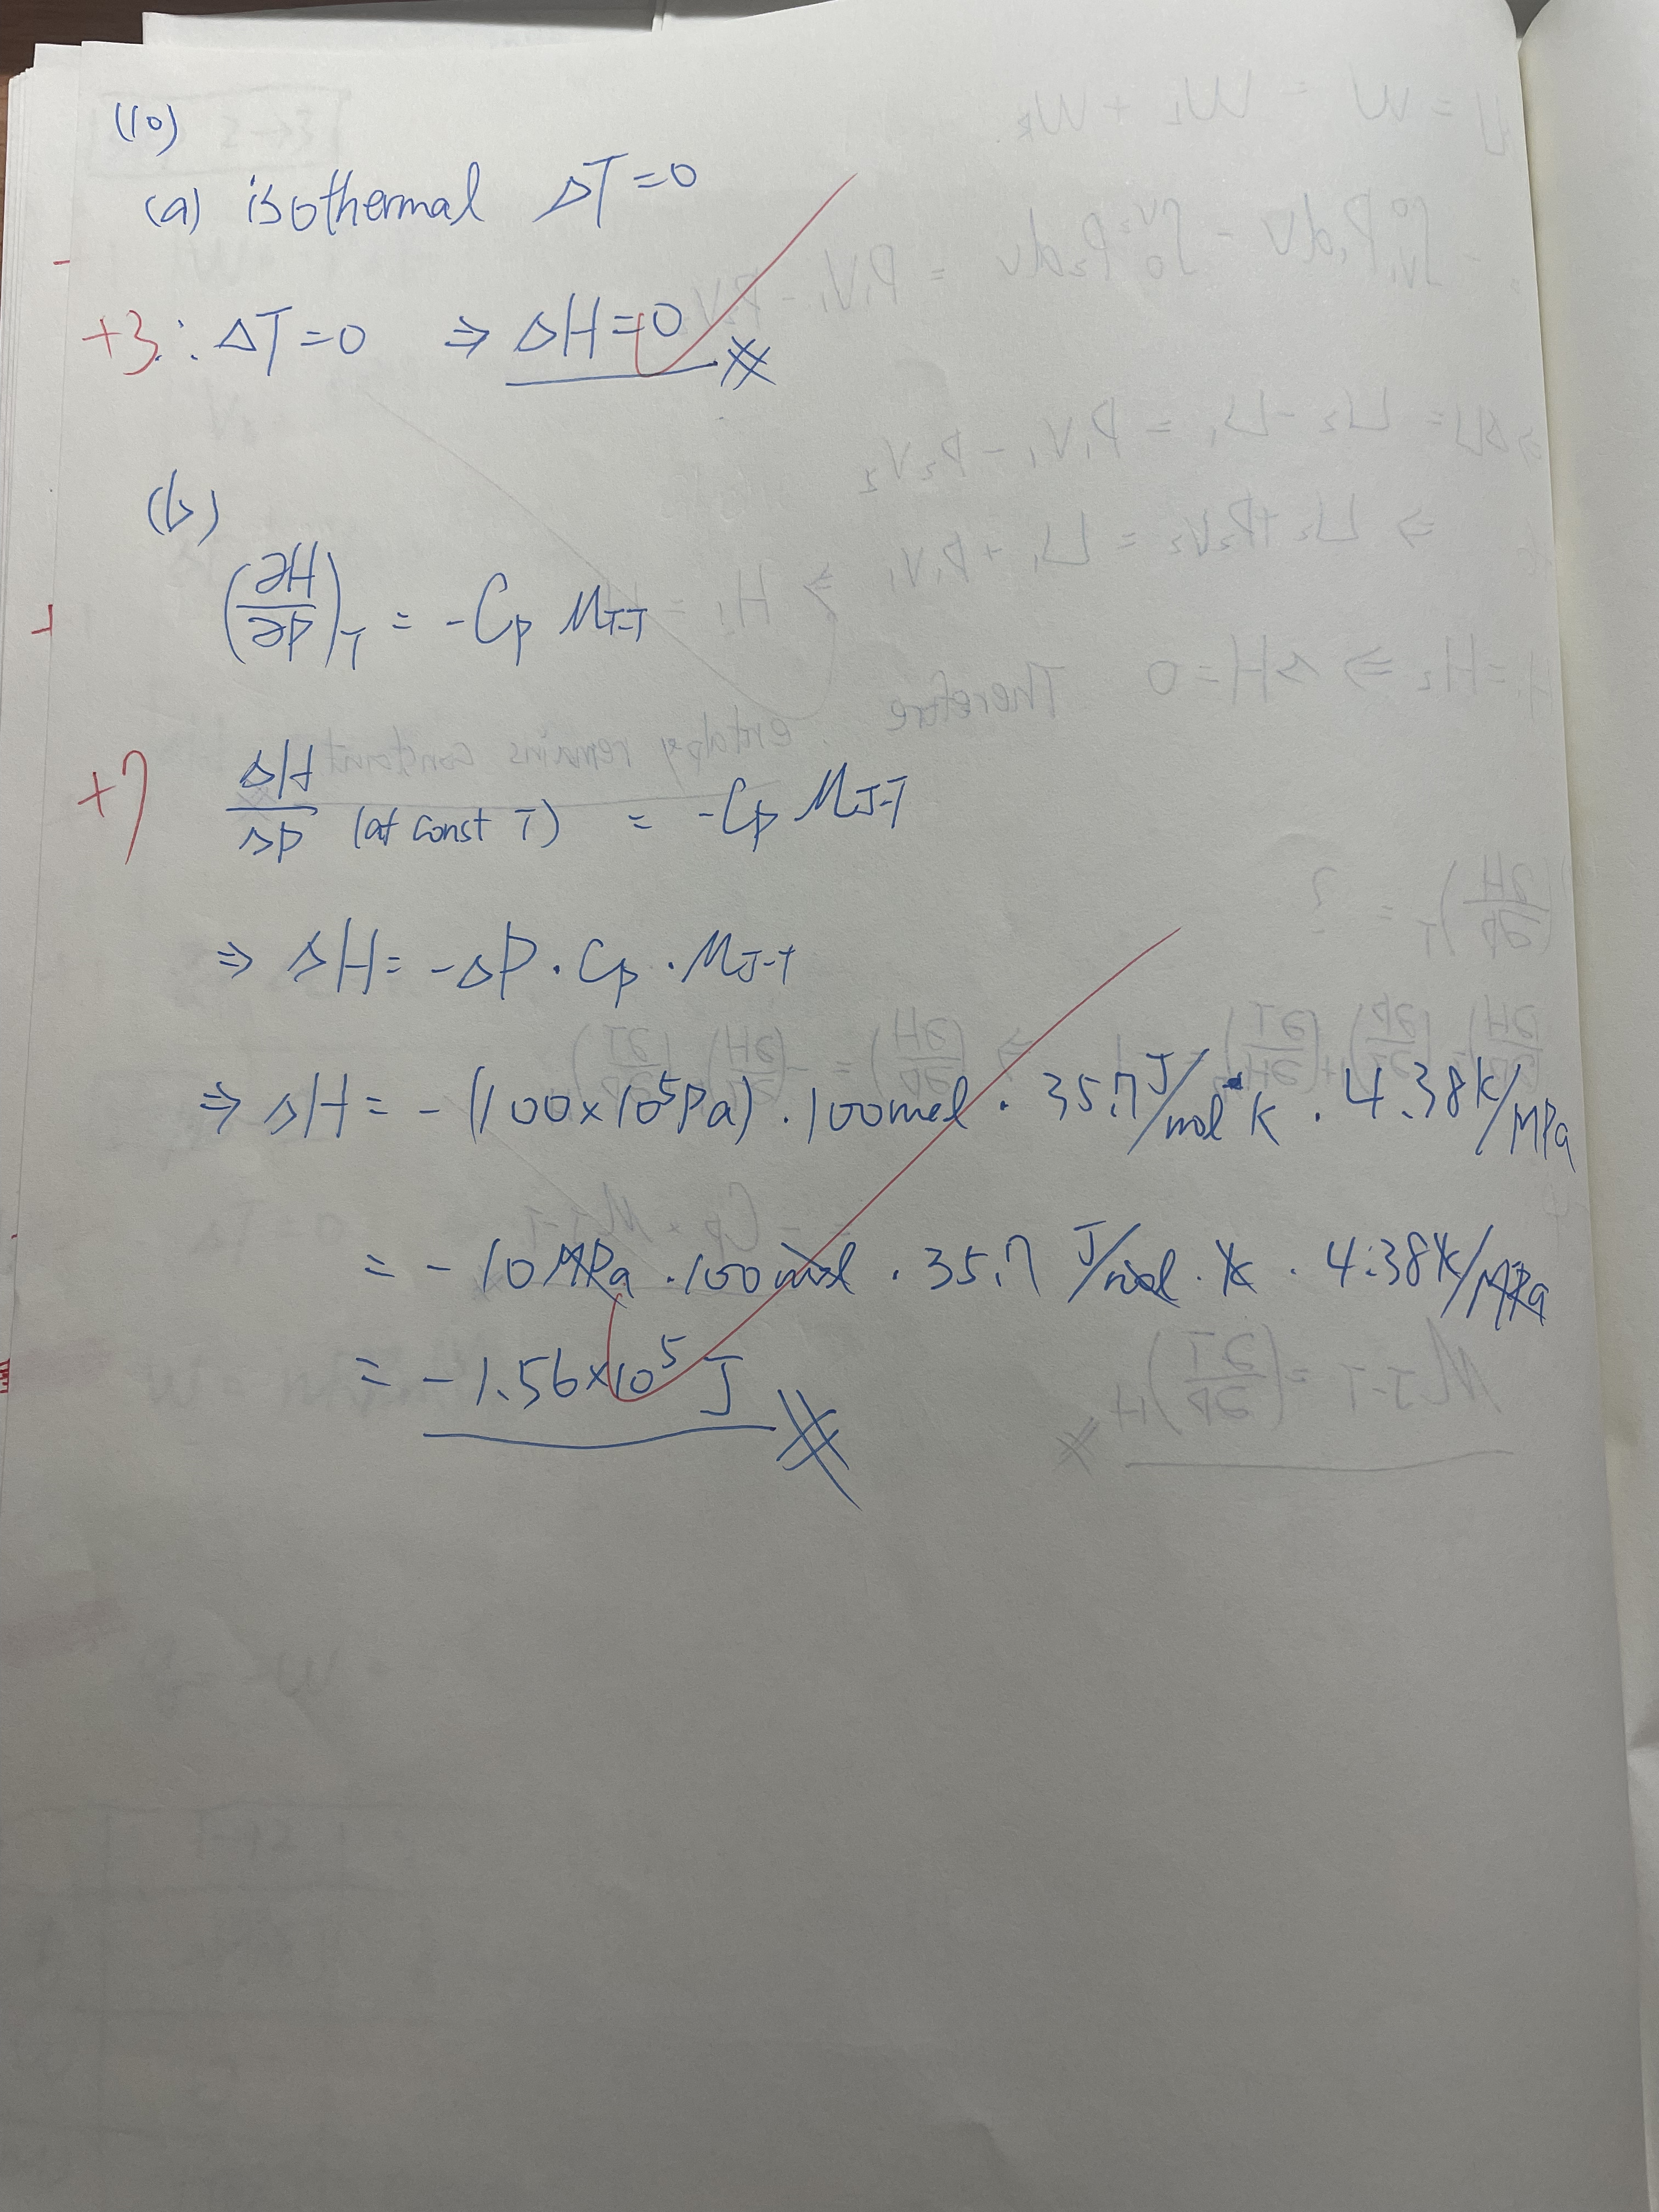 (10)
(a) isothermal ΔT=0
+3 ∵ ΔT=0 ⇒ ΔH=0
(b)
(∂H/∂P)_T = -Cp μ_J-T
+7 ΔH/ΔP (at const T) = -Cp μ_J-T
⇒ ΔH = -ΔP · Cp · μ_J-T
⇒ ΔH = - (100×10⁵Pa) · 100mol · 35.7 J/mol K · 4.38 K/MPa
= - 10 MPa · 100 mol · 35.7 J/mol · K · 4.38 K/MPa
= -1.56×10⁵ J